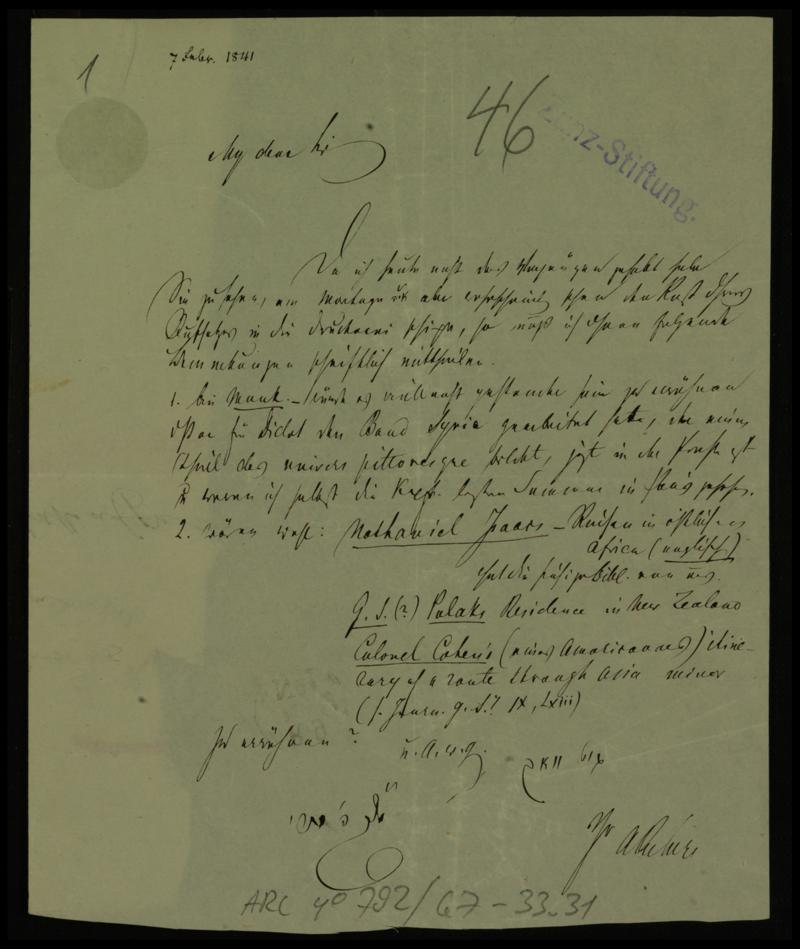 1
7 Febr. 1841
46
Zunz-Stiftung.
My dear Sir
Da ich heute nicht das Vergnügen gehabt habe
Sie zu sehen, am Montage aber den Rest Ihres
Aufsatzes in die Druckerei schicke, so muß ich Ihnen folgende
Bemerkungen schriftlich mittheilen.
1. bei Munk. – würde es vielleicht gestattet sein zu erwähnen
daß er für Didot den Band Syrie gearbeitet hat, der einen
Theil des univers pittoresque bildet, jetzt in der Presse ist
u. wovon ich selbst die letzten Sommer in Paris gesehen.
2. wären wohl: Nathaniel Isaacs – Reisen in östlichen
Africa (englisch)
hat die hiesige Bibl.
(?) Polaks Residence in New Zealand
Colonel Cohen's (eines Amerikaners) itine-
rary of a route through Asia minor
(s. Journ. g. S.? IX, LXIII)
zu erwähnen?
u. A. w. g.
Ihr
ARC 4° 792/G7-33.31